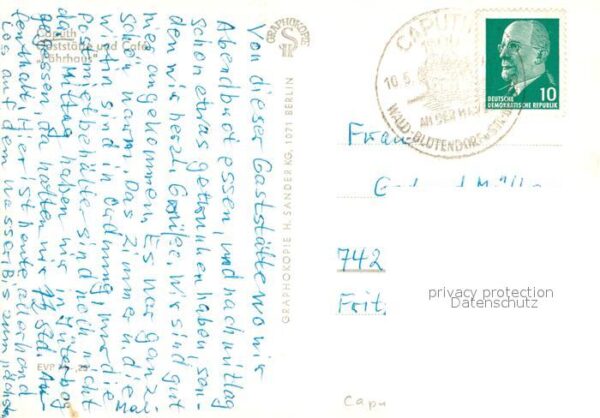 Caputh
Gaststätte und Café
„Fährhaus"
Von dieser Gaststätte wo wir
Abendbrot essen, und nachmittag
schon etwas getrunken haben, sen-
den wir herzl. Grüße. Wir sind gut
hier angekommen. Es war ganz
schön warm. Das Zimmer und die
sind in Ordnung, nur die
behälter sind noch nicht
da. Mittag haben wir in Jüterbog
gegessen, da hatten wir 1½ Std. Au-
fenthalt. Hier ist heute allerhand
los auf dem Wasser. Bis zum
EVP
GRAPHOKOPIE
GRAPHOKOPIE H. SANDER KG, 1071 BERLIN
CAPUTH
10.5.
AN DER HAVEL
WALD-BLÜTENDORF
10
DEUTSCHE
DEMOKRATISCHE REPUBLIK
Frau
742
Frit
privacy protection
Datenschutz
Capu